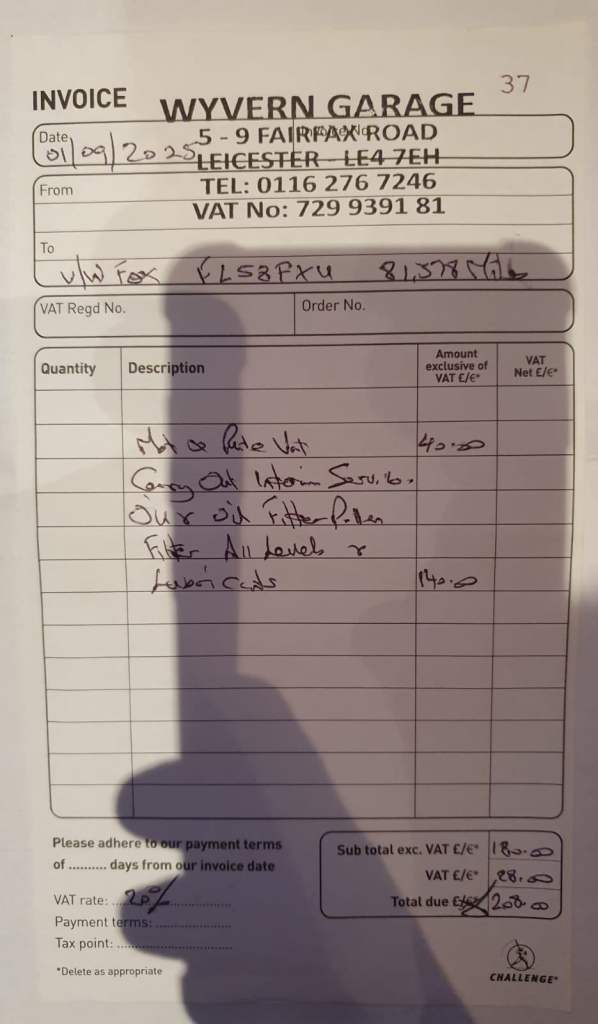 37
INVOICE
WYVERN GARAGE
Date
Invoice No.
01/09/2025
5 - 9 FAIRFAX ROAD
LEICESTER - LE4 7EH
From
TEL: 0116 276 7246
VAT No: 729 9391 81
To
V/W Fox FL53FXU 81,578 Miles
VAT Regd No.
Order No.
Quantity
Description
Amount exclusive of VAT £/€*
VAT Net £/€*
Mot Vat 40.00
Carry Out Interim Service.
oil Filter Pollen
Filter All Levels
Lubricants 140.00
Please adhere to our payment terms
of .......... days from our invoice date
Sub total exc. VAT £/€* 180.00
VAT £/€* 28.00
VAT rate: 20%
Total due £/€* 208.00
Payment terms:
Tax point:
*Delete as appropriate
CHALLENGE®